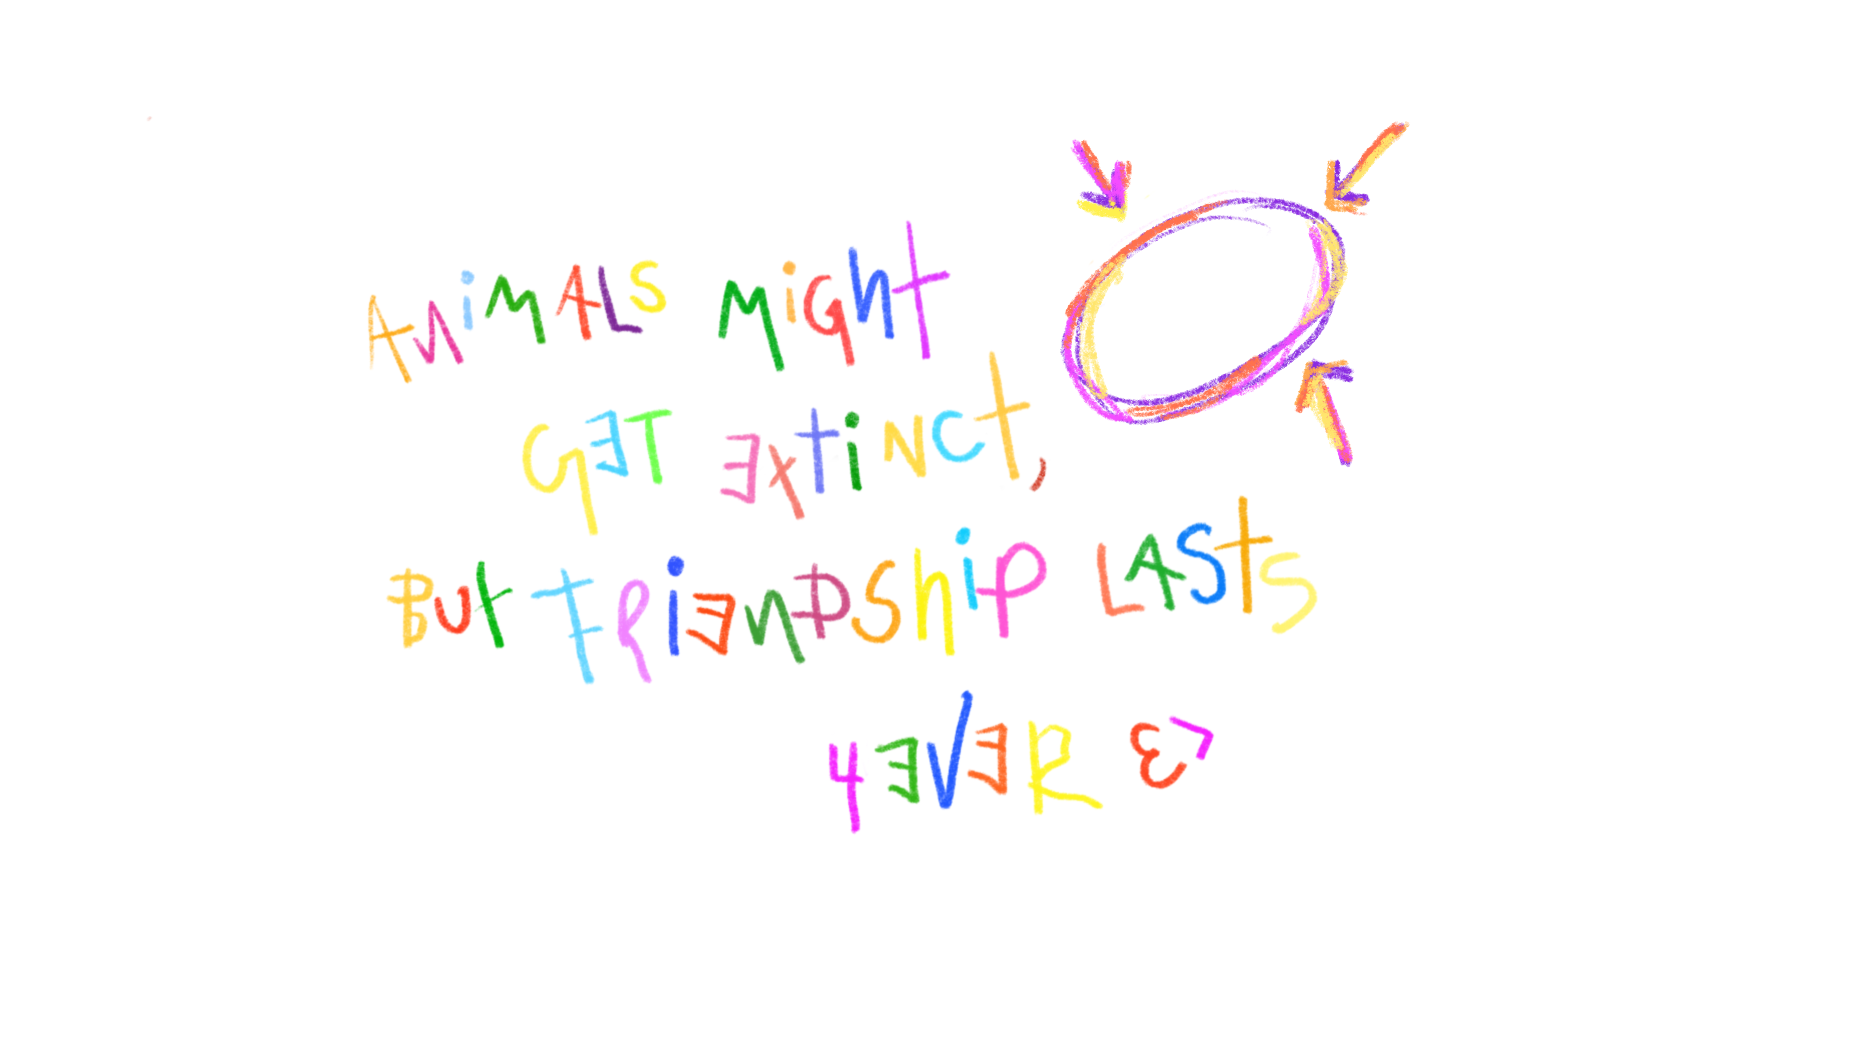 ANiMALS MiGht
GET EXtiNCt,
BUt FRiEnDShiP LASTS
4EVER ε>